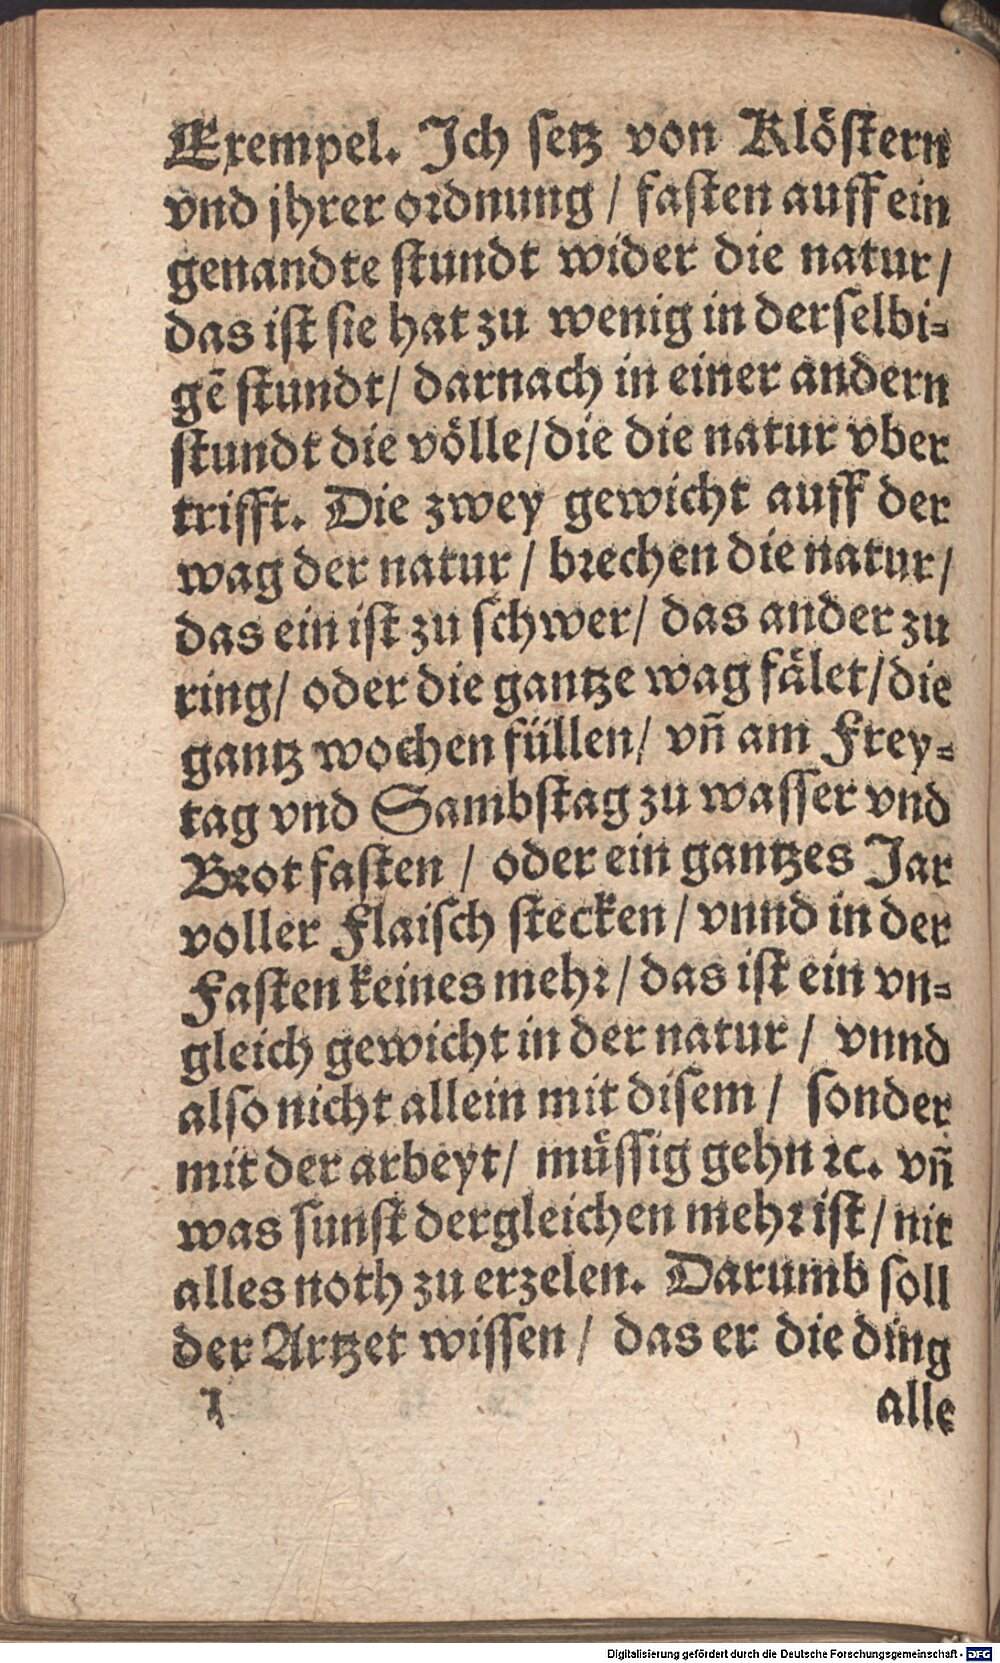 Exempel. Ich setz von Klöstern
vnd jhrer ordnung / fasten auff ein
genandte stundt wider die natur /
das ist sie hat zu wenig in derselbi-
gē stundt / darnach in einer andern
stundt die völle / die die natur vber
trifft. Die zwey gewicht auff der
wag der natur / brechen die natur /
das ein ist zu schwer / das ander zu
ring / oder die gantze wag fälet / die
gantz wochen füllen / vñ am Frey-
tag vnd Sambstag zu wasser vnd
Brot fasten / oder ein gantzes Jar
voller Flaisch stecken / vnnd in der
Fasten keines mehr / das ist ein vn-
gleich gewicht in der natur / vnnd
also nicht allein mit disem / sonder
mit der arbeyt / müssig gehn ꝛc. vñ
was sunst dergleichen mehr ist / nit
alles noth zu erzelen. Darumb soll
der Artzet wissen / das er die ding
alle
Digitalisierung gefördert durch die Deutsche Forschungsgemeinschaft - DFG